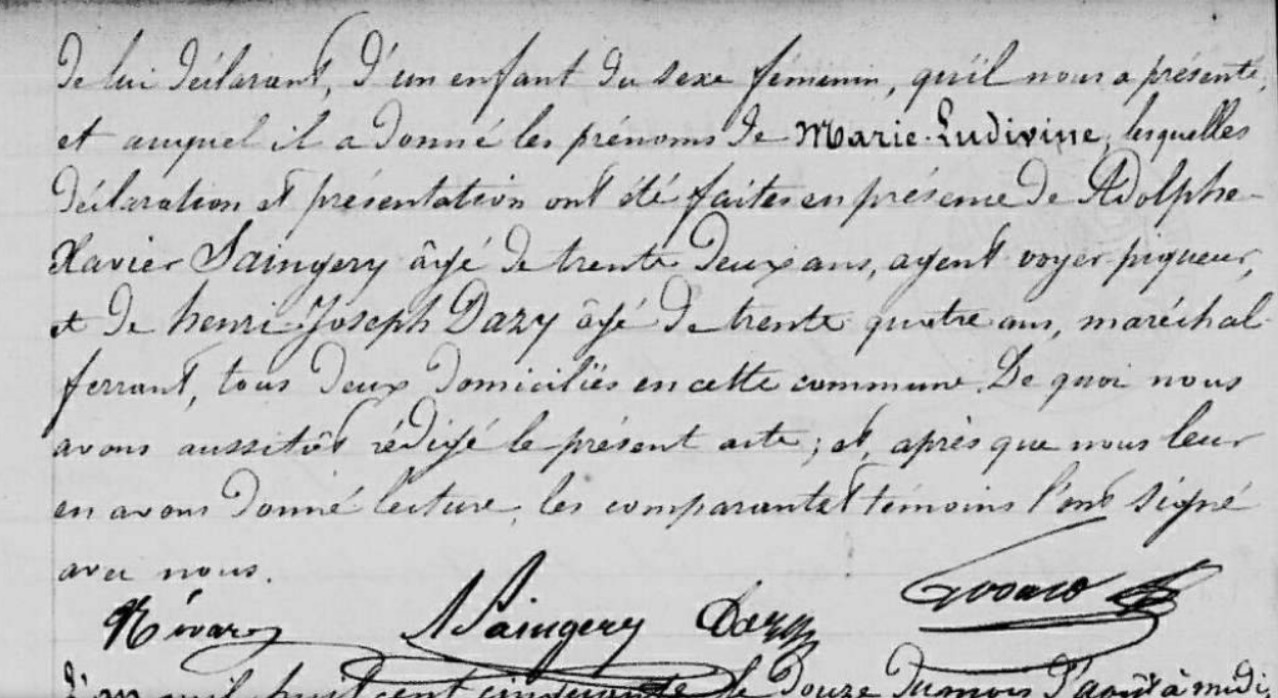 de lui déclarant, d'un enfant du sexe féminin, qu'il nous a présenté,
et auquel il a donné les prénoms de Marie-Ludivine, lesquelles
déclaration et présentation ont été faites en présence de Adolphe-
Xavier Saingery âgé de trente deux ans, agent-voyer-piqueur,
et de henri-Joseph Dazy âgé de trente-quatre ans, maréchal-
ferrant, tous deux domiciliés en cette commune. De quoi nous
avons aussitôt rédigé le présent acte; et, après que nous leur
en avons donné lecture, les comparant et témoins l'ont signé
avec nous.
A Saingery Dazy
L'an mil huit cent cinquante le douze du mois d'août à midi